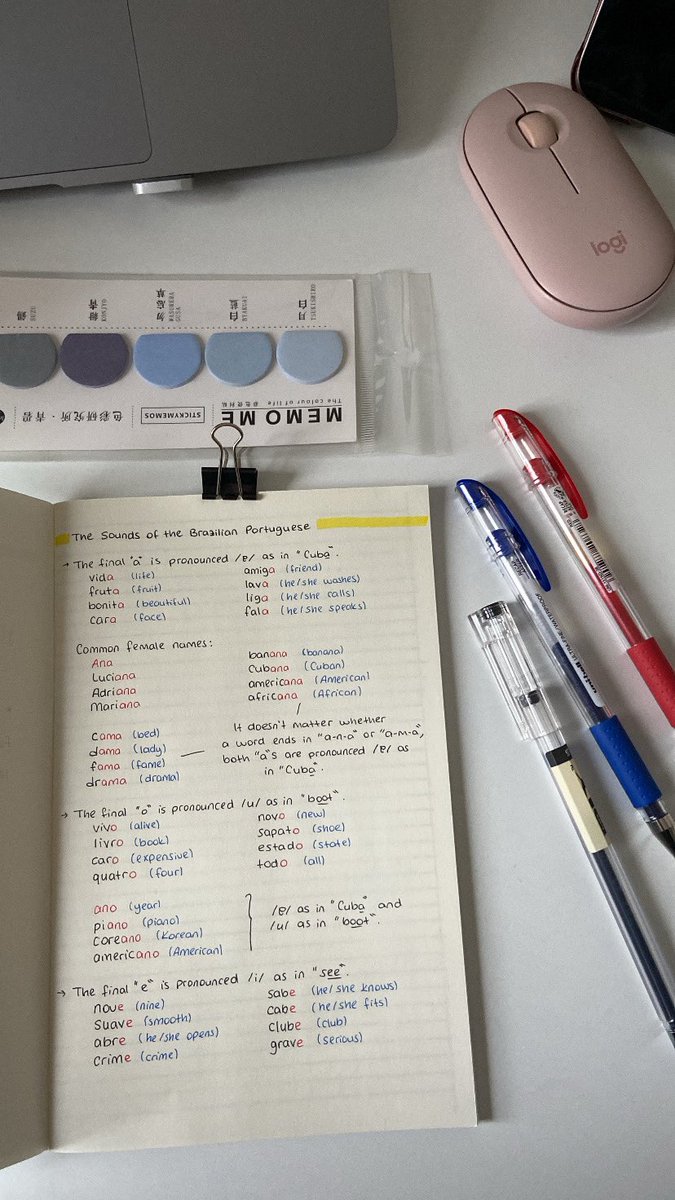 logi
鼠 SUZU
紺青 KONJYO
勿忘草 WASURENA GUSA
白藍 BYAKUAI
月白 TSUKISHIRO
MEMO ME
The colour of life
STICKYMEMOS
色彩研究所・青碧
The Sounds of the Brazilian Portuguese
→ The final "a" is pronounced /ɐ/ as in "Cuba".
vida (life)
fruta (fruit)
bonita (beautiful)
cara (face)
amiga (friend)
lava (he/she washes)
liga (he/she calls)
fala (he/she speaks)
Common female names:
Ana
Luciana
Adriana
Mariana
banana (banana)
Cubana (Cuban)
americana (American)
africana (African)
cama (bed)
dama (lady)
fama (fame)
drama (drama)
It doesn't matter whether
a word ends in "a-n-a" or "a-m-a",
both "a"s are pronounced /ɐ/ as
in "Cuba".
→ The final "o" is pronounced /u/ as in "boot".
vivo (alive)
livro (book)
caro (expensive)
quatro (four)
novo (new)
sapato (shoe)
estado (state)
todo (all)
ano (year)
piano (piano)
coreano (Korean)
americano (American)
/ɐ/ as in "Cuba" and
/u/ as in "boot".
→ The final "e" is pronounced /i/ as in "see".
nove (nine)
suave (smooth)
abre (he/she opens)
crime (crime)
sabe (he/she knows)
cabe (he/she fits)
clube (club)
grave (serious)